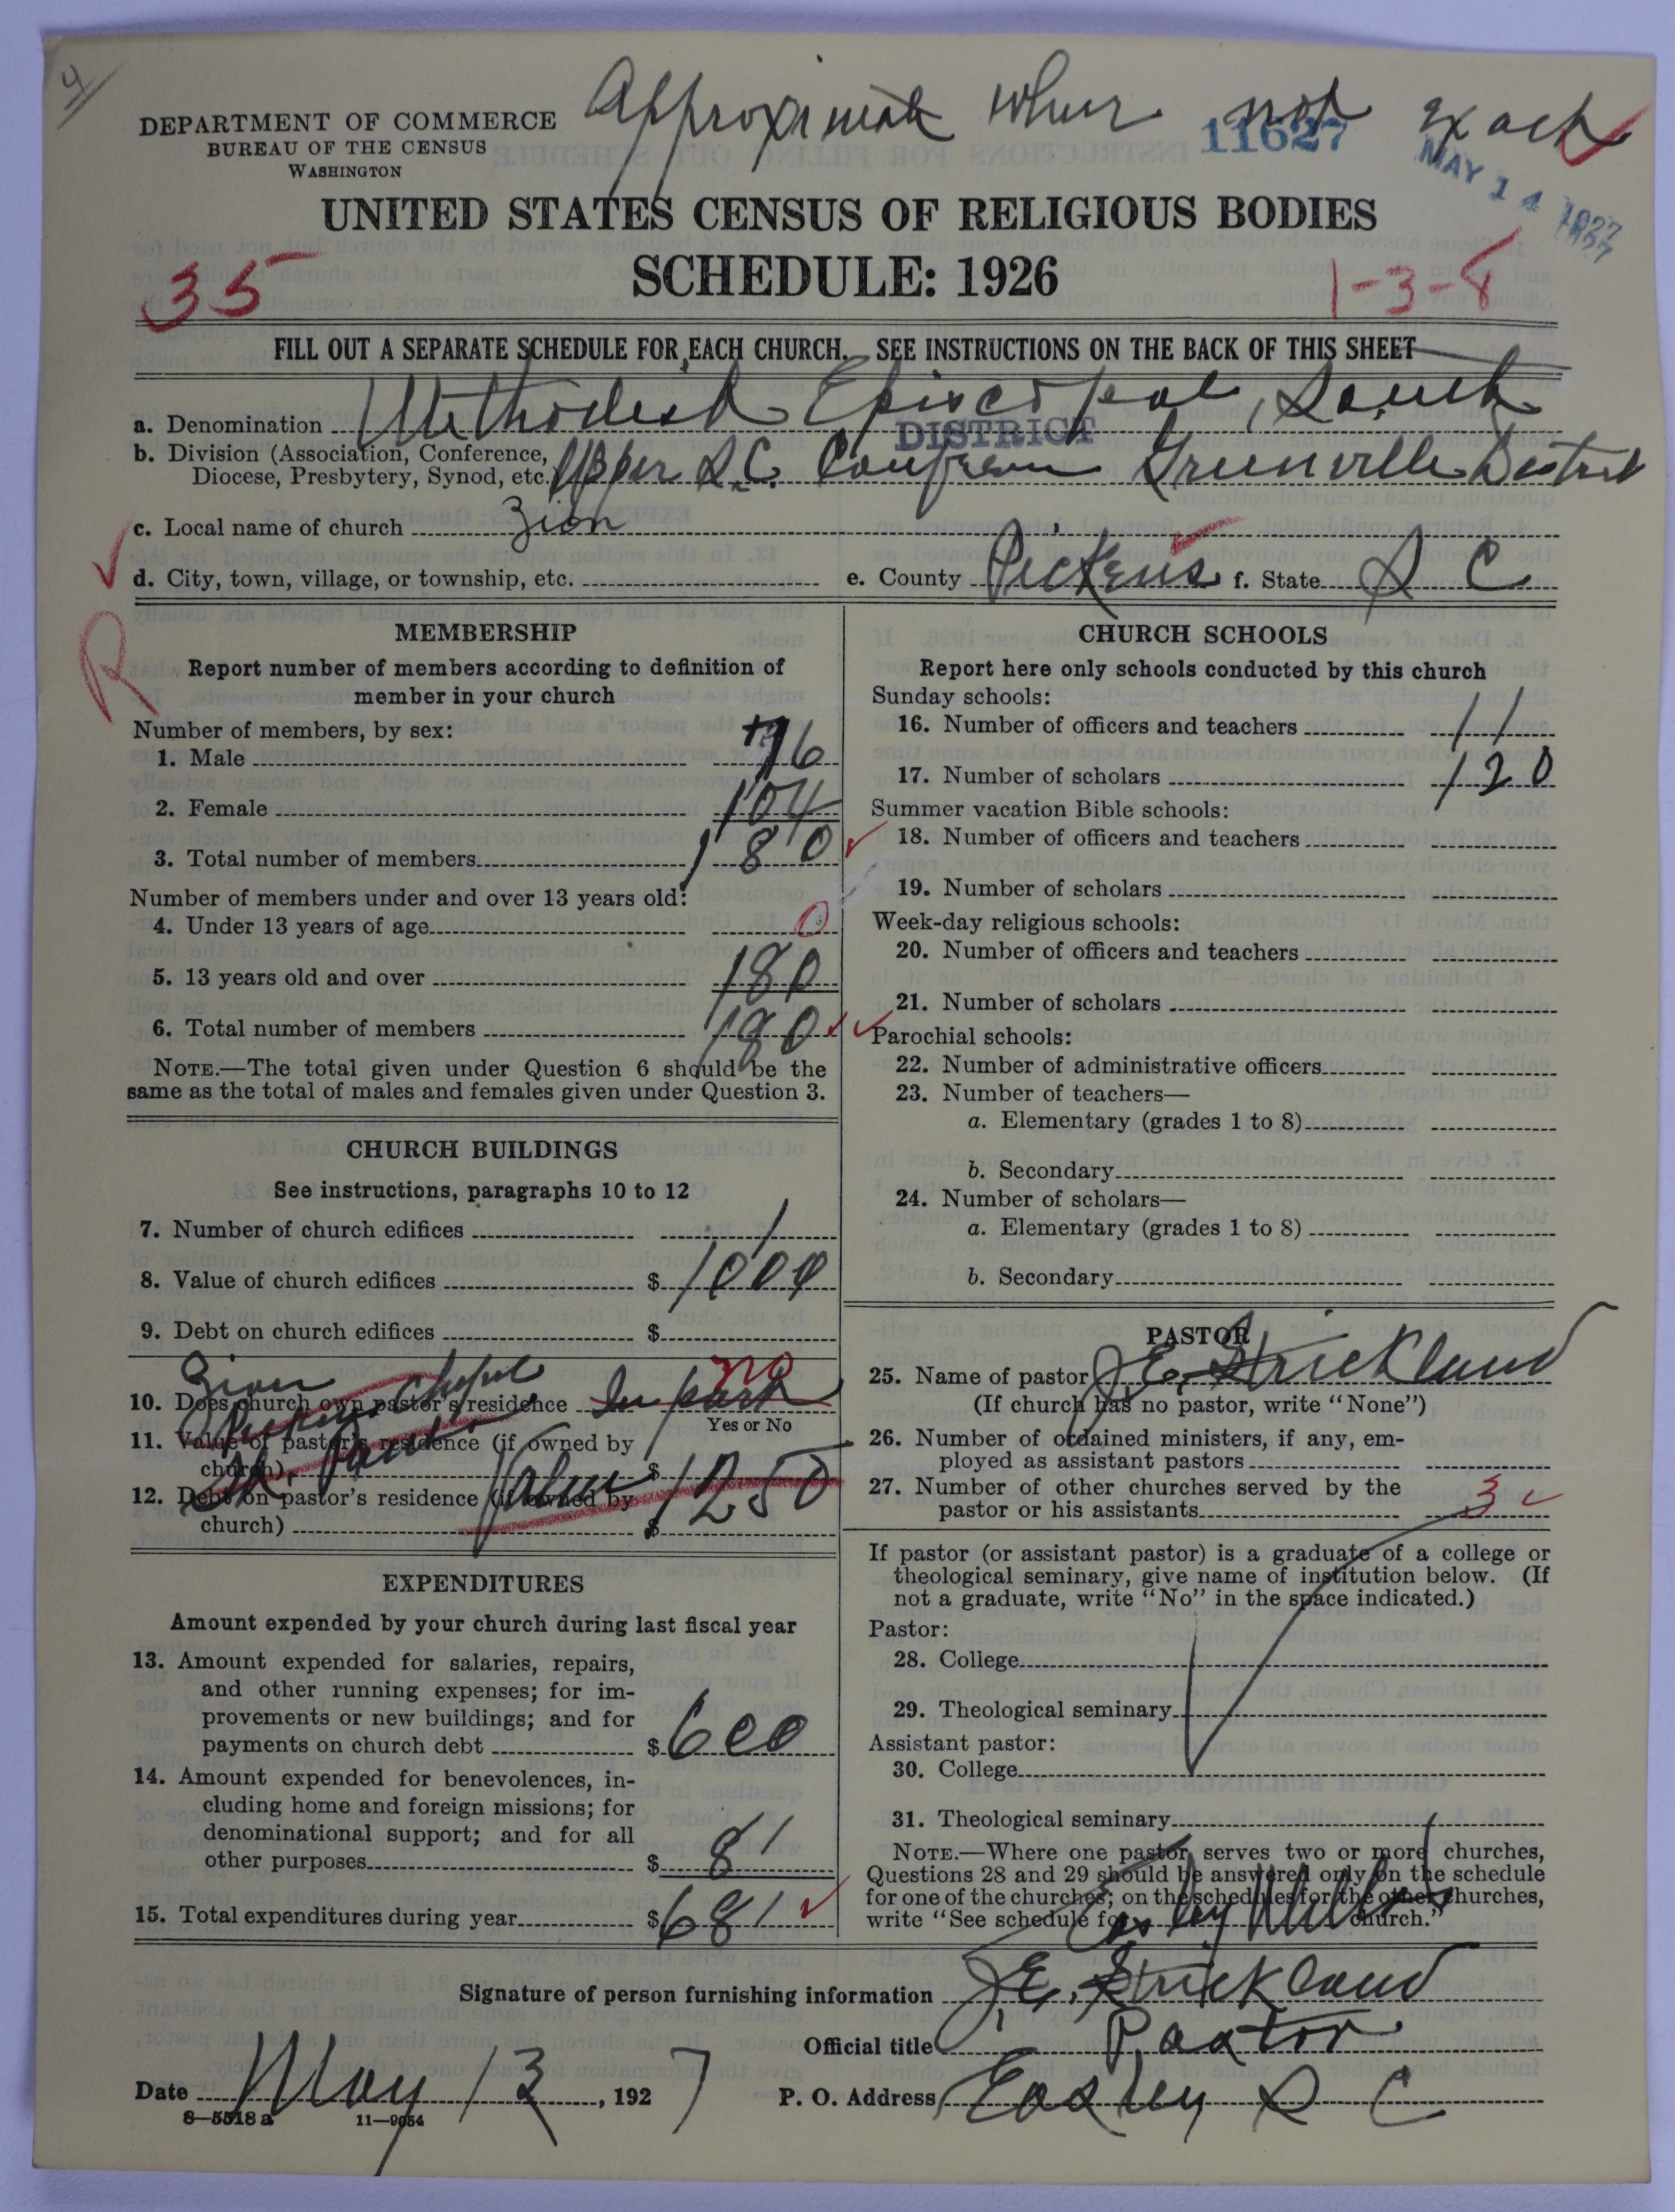 4
Approximate when not exact
DEPARTMENT OF COMMERCE
BUREAU OF THE CENSUS
WASHINGTON
11627
MAY 14 1927
UNITED STATES CENSUS OF RELIGIOUS BODIES
SCHEDULE: 1926
35
1-3-8
FILL OUT A SEPARATE SCHEDULE FOR EACH CHURCH. SEE INSTRUCTIONS ON THE BACK OF THIS SHEET
a. Denomination Methodist Episcopal, South
DISTRICT
b. Division (Association, Conference, Diocese, Presbytery, Synod, etc.) Upper S.C. Conference Greenville District
c. Local name of church Zion
d. City, town, village, or township, etc. e. County Pickens f. State S C
R
MEMBERSHIP
Report number of members according to definition of
member in your church
Number of members, by sex:
1. Male 76
2. Female 104
3. Total number of members 180
Number of members under and over 13 years old:
4. Under 13 years of age 0
5. 13 years old and over 180
6. Total number of members 180
NOTE.—The total given under Question 6 should be the
same as the total of males and females given under Question 3.
CHURCH BUILDINGS
See instructions, paragraphs 10 to 12
7. Number of church edifices 1
8. Value of church edifices $ 1000
9. Debt on church edifices $
10. Does church own pastor's residence In part no
Yes or No
Zion
Chapel
11. Value of pastor's residence (if owned by
church) $ 1250
Value
12. Debt on pastor's residence (if owned by
church) $
EXPENDITURES
Amount expended by your church during last fiscal year
13. Amount expended for salaries, repairs,
and other running expenses; for im-
provements or new buildings; and for
payments on church debt $ 600
14. Amount expended for benevolences, in-
cluding home and foreign missions; for
denominational support; and for all
other purposes $ 81
15. Total expenditures during year $ 681
CHURCH SCHOOLS
Report here only schools conducted by this church
Sunday schools:
16. Number of officers and teachers 11
17. Number of scholars 120
Summer vacation Bible schools:
18. Number of officers and teachers
19. Number of scholars
Week-day religious schools:
20. Number of officers and teachers
21. Number of scholars
Parochial schools:
22. Number of administrative officers
23. Number of teachers—
a. Elementary (grades 1 to 8)
b. Secondary
24. Number of scholars—
a. Elementary (grades 1 to 8)
b. Secondary
PASTOR
25. Name of pastor J.E. Strickland
(If church has no pastor, write "None")
26. Number of ordained ministers, if any, em-
ployed as assistant pastors
27. Number of other churches served by the
pastor or his assistants 3
If pastor (or assistant pastor) is a graduate of a college or
theological seminary, give name of institution below. (If
not a graduate, write "No" in the space indicated.)
Pastor:
28. College
29. Theological seminary
Assistant pastor:
30. College
31. Theological seminary
NOTE.—Where one pastor serves two or more churches,
Questions 28 and 29 should be answered only on the schedule
for one of the churches; on the schedules for the other churches,
write "See schedule for Easley Mills church."
Signature of person furnishing information J.E. Strickland
Official title Pastor
Date May 13, 1927 P. O. Address Easley S C
8—5518 a 11—9054